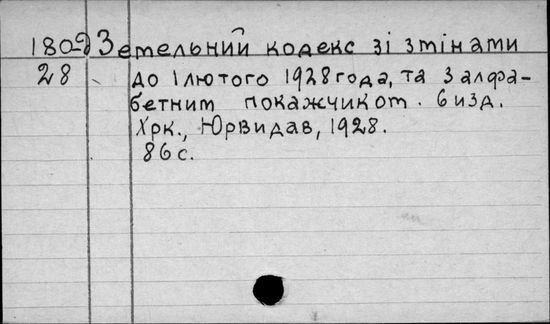 180-д Земельний кодекс зі змінами
28 до 1 лютого 1928 года, та з алфа-
бетним покажчиком. 6 изд.
Хрк., Юрвидав, 1928.
86 с.